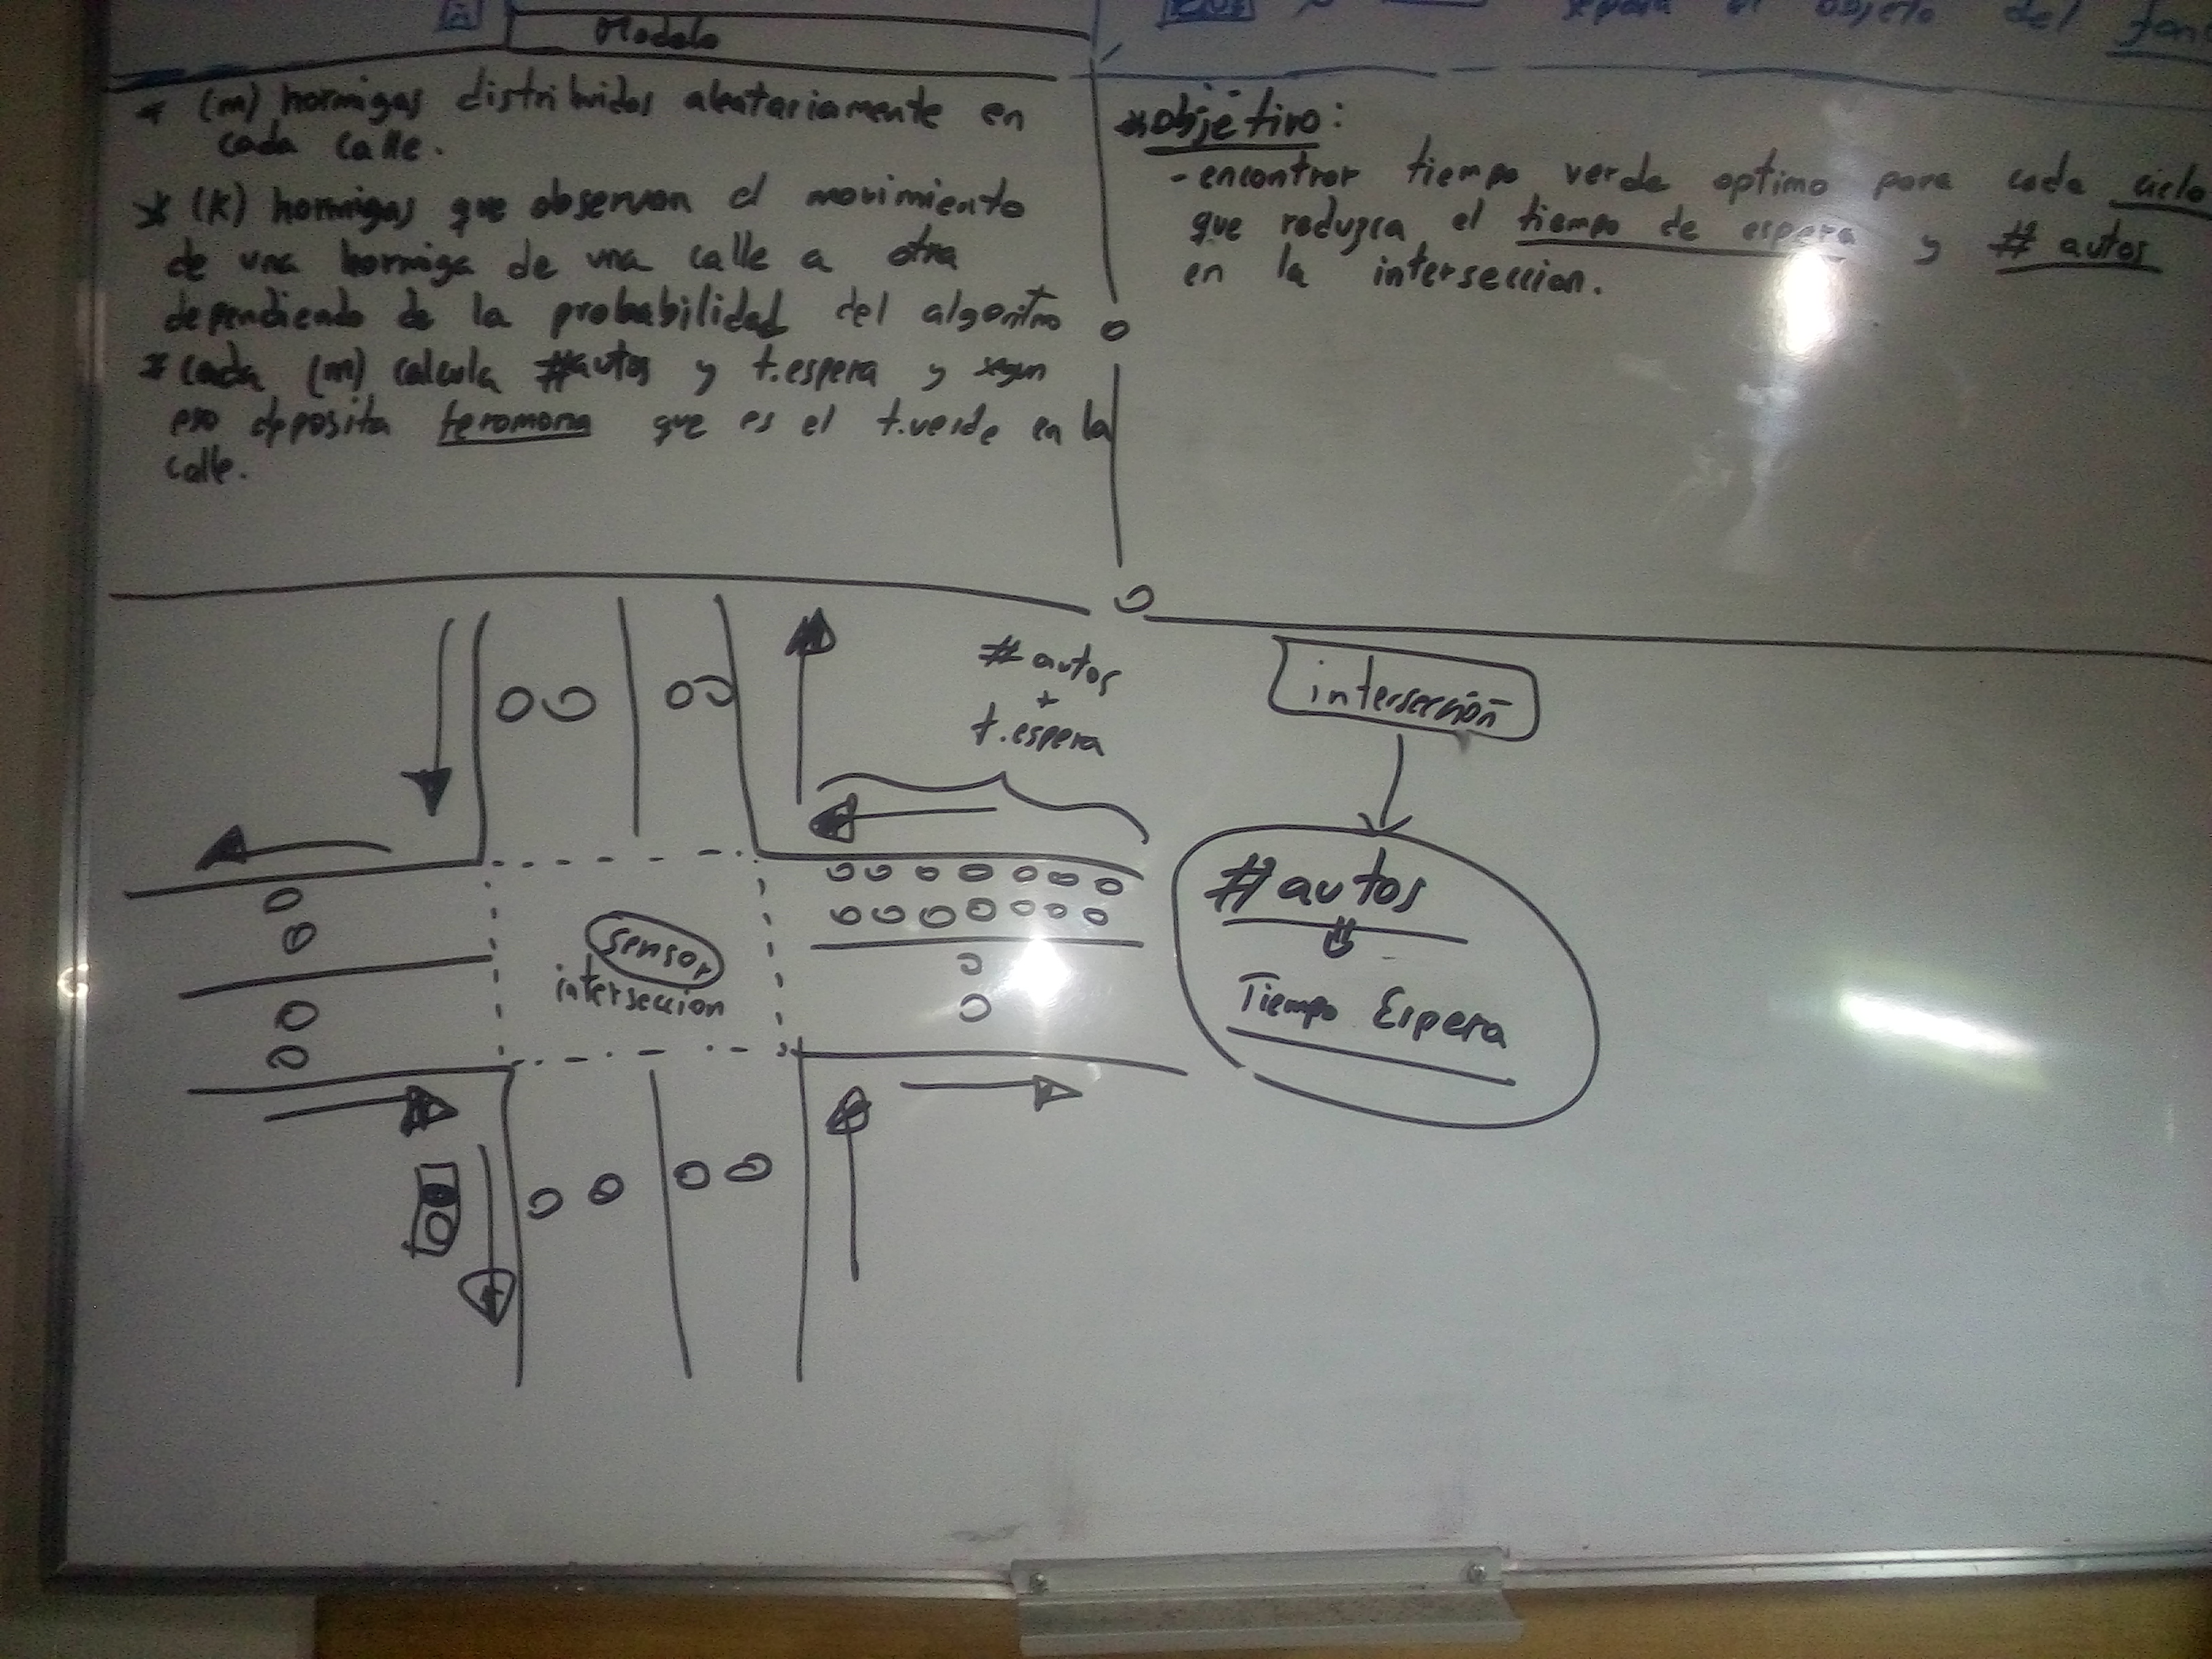 Modelo
* (m) hormigas distribuidos aleatariamente en
cada calle.
* (k) hormigas que observan el movimiento
de una hormiga de una calle a otra
dependiendo de la probabilidad del algoritmo
* cada (m) calcula #autos y t.espera y segun
eso deposita feromona que es el t.verde en la
calle.
separa el objeto del
* objetivo:
- encontrar tiempo verde optimo para cada ciclo
que reduzca el tiempo de espera y # autos
en la interseccion.
# autos
+
t.espera
intersección
sensor
interseccion
#autos
Tiempo Espera